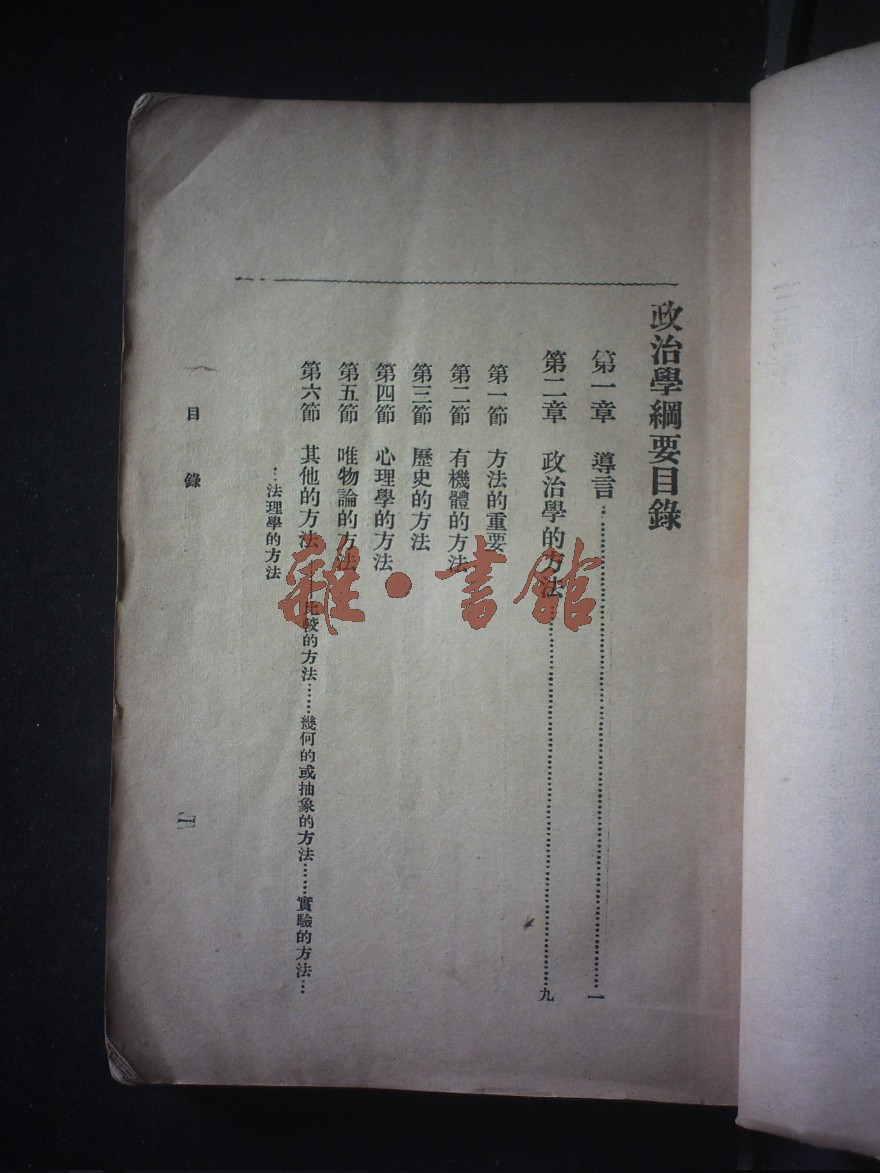 政治學綱要目錄
第一章 導言……一
第二章 政治學的方法……九
第一節 方法的重要
第二節 有機體的方法
第三節 歷史的方法
第四節 心理學的方法
第五節 唯物論的方法
第六節 其他的方法——比較的方法……幾何的或抽象的方法……實驗的方法…
…法理學的方法
目錄
一
雜·書館